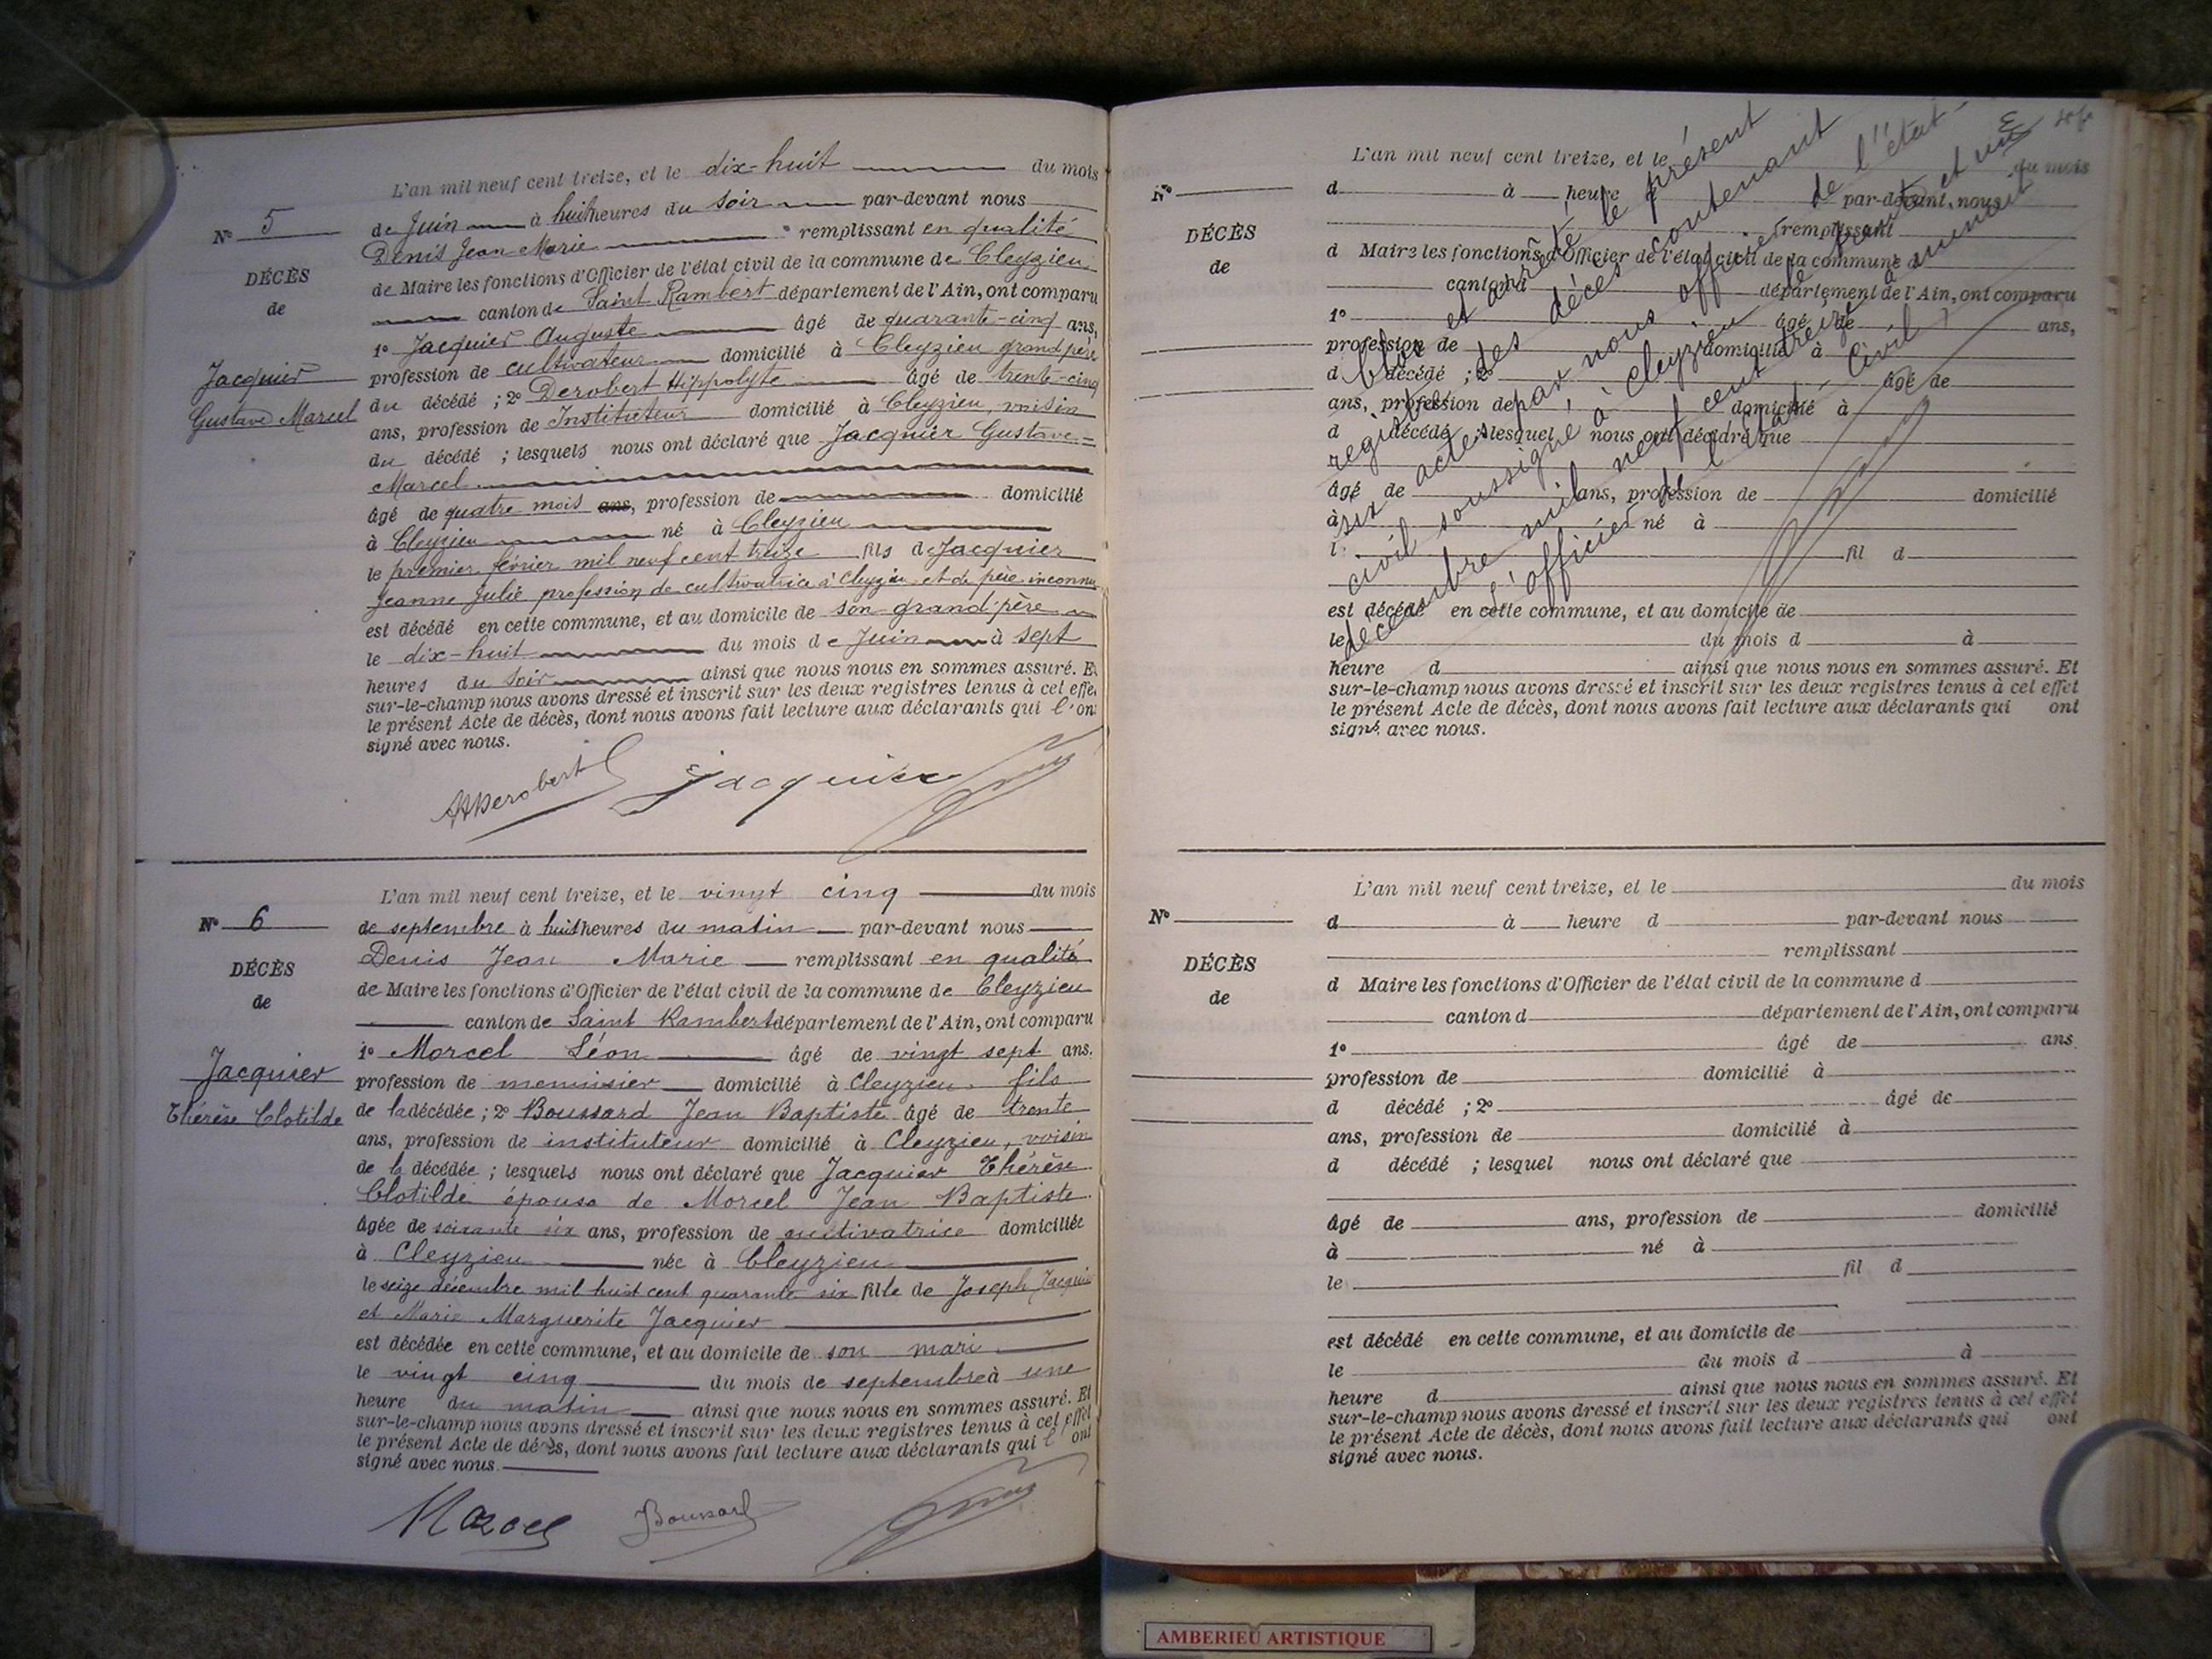 L'an mil neuf cent treize, et le dix-huit du mois
N° 5
de Juin à huit heures du soir par-devant nous
Denis Jean Marie remplissant en qualité
DÉCÈS
de Maire les fonctions d'Officier de l'état civil de la commune de Cleyzieu
de
canton de Saint Rambert département de l'Ain, ont comparu
1° Jacquier Auguste âgé de quarante-cinq ans,
Jacquier
profession de cultivateur domicilié à Cleyzieu grand père
Gustave Marcel
du décédé ; 2° Derobert Hippolyte âgé de trente-cinq
ans, profession de Instituteur domicilié à Cleyzieu, voisin
du décédé ; lesquels nous ont déclaré que Jacquier Gustave=
Marcel
âgé de quatre mois ans, profession de domicilié
à Cleyzieu né à Cleyzieu
le premier février mil neuf cent treize fils de Jacquier
Jeanne Julie profession de cultivatrice à Cleyzieu et de père inconnu
est décédé en cette commune, et au domicile de son grand'père
le dix-huit du mois de Juin à sept
heures du soir ainsi que nous nous en sommes assuré. Et
sur-le-champ nous avons dressé et inscrit sur les deux registres tenus à cet effe
le présent Acte de décès, dont nous avons fait lecture aux déclarants qui l'on
signé avec nous.
HDerobert Jacquier
L'an mil neuf cent treize, et le vingt cinq du mois
N° 6
de septembre à huit heures du matin par-devant nous
Denis Jean Marie remplissant en qualité
DÉCÈS
de Maire les fonctions d'Officier de l'état civil de la commune de Cleyzieu
de
canton de Saint Rambert département de l'Ain, ont comparu
1° Morcel Léon âgé de vingt sept ans.
Jacquier
profession de menuisier domicilié à Cleyzieu fils
Thérèse Clotilde
de la décédée ; 2° Boussard Jean Baptiste âgé de trente
ans, profession de instituteur domicilié à Cleyzieu, voisin
de la décédée ; lesquels nous ont déclaré que Jacquier Thérèse
Clotilde épouse de Morcel Jean Baptiste
âgée de soixante six ans, profession de cultivatrice domiciliée
à Cleyzieu née à Cleyzieu
le seize décembre mil huit cent quarante six fille de Joseph Jacquier
et Marie Marguerite Jacquier
est décédée en cette commune, et au domicile de son mari
le vingt cinq du mois de septembre à une
heure du matin ainsi que nous nous en sommes assuré. Et
sur-le-champ nous avons dressé et inscrit sur les deux registres tenus à cet effet
le présent Acte de décès, dont nous avons fait lecture aux déclarants qui l'ont
signé avec nous.
Morcel Boussard
L'an mil neuf cent treize, et le du mois
N°
d à heure d par-devant nous
DÉCÈS
remplissant
de
d Maire les fonctions d'Officier de l'état civil de la commune d
canton d département de l'Ain, ont comparu
1° âgé de ans,
profession de domicilié à
d décédé ; 2° âgé de
ans, profession de domicilié à
d décédé ; lesquel nous ont déclaré que
âgé de ans, profession de domicilié
à né à
l fil d
est décédé en cette commune, et au domicile de
le du mois d à
heure d ainsi que nous nous en sommes assuré. Et
sur-le-champ nous avons dressé et inscrit sur les deux registres tenus à cet effet
le présent Acte de décès, dont nous avons fait lecture aux déclarants qui ont
signé avec nous.
Clos et arrêté le présent
registre des décès contenant
six actes, par nous officier de l'état-
civil soussigné, à Cleyzieu le trente et un
décembre mil neuf cent treize à minuit
L'officier de l'état-civil
L'an mil neuf cent treize, et le du mois
N°
d à heure d par-devant nous
remplissant
DÉCÈS
d Maire les fonctions d'Officier de l'état civil de la commune d
de
canton d département de l'Ain, ont comparu
1° âgé de ans
profession de domicilié à
d décédé ; 2° âgé de
ans, profession de domicilié à
d décédé ; lesquel nous ont déclaré que
âgé de ans, profession de domicilié
à né à
le fil d
est décédé en cette commune, et au domicile de
le du mois d à
heure d ainsi que nous nous en sommes assuré. Et
sur-le-champ nous avons dressé et inscrit sur les deux registres tenus à cet effet
le présent Acte de décès, dont nous avons fait lecture aux déclarants qui ont
signé avec nous.
AMBERIEU ARTISTIQUE